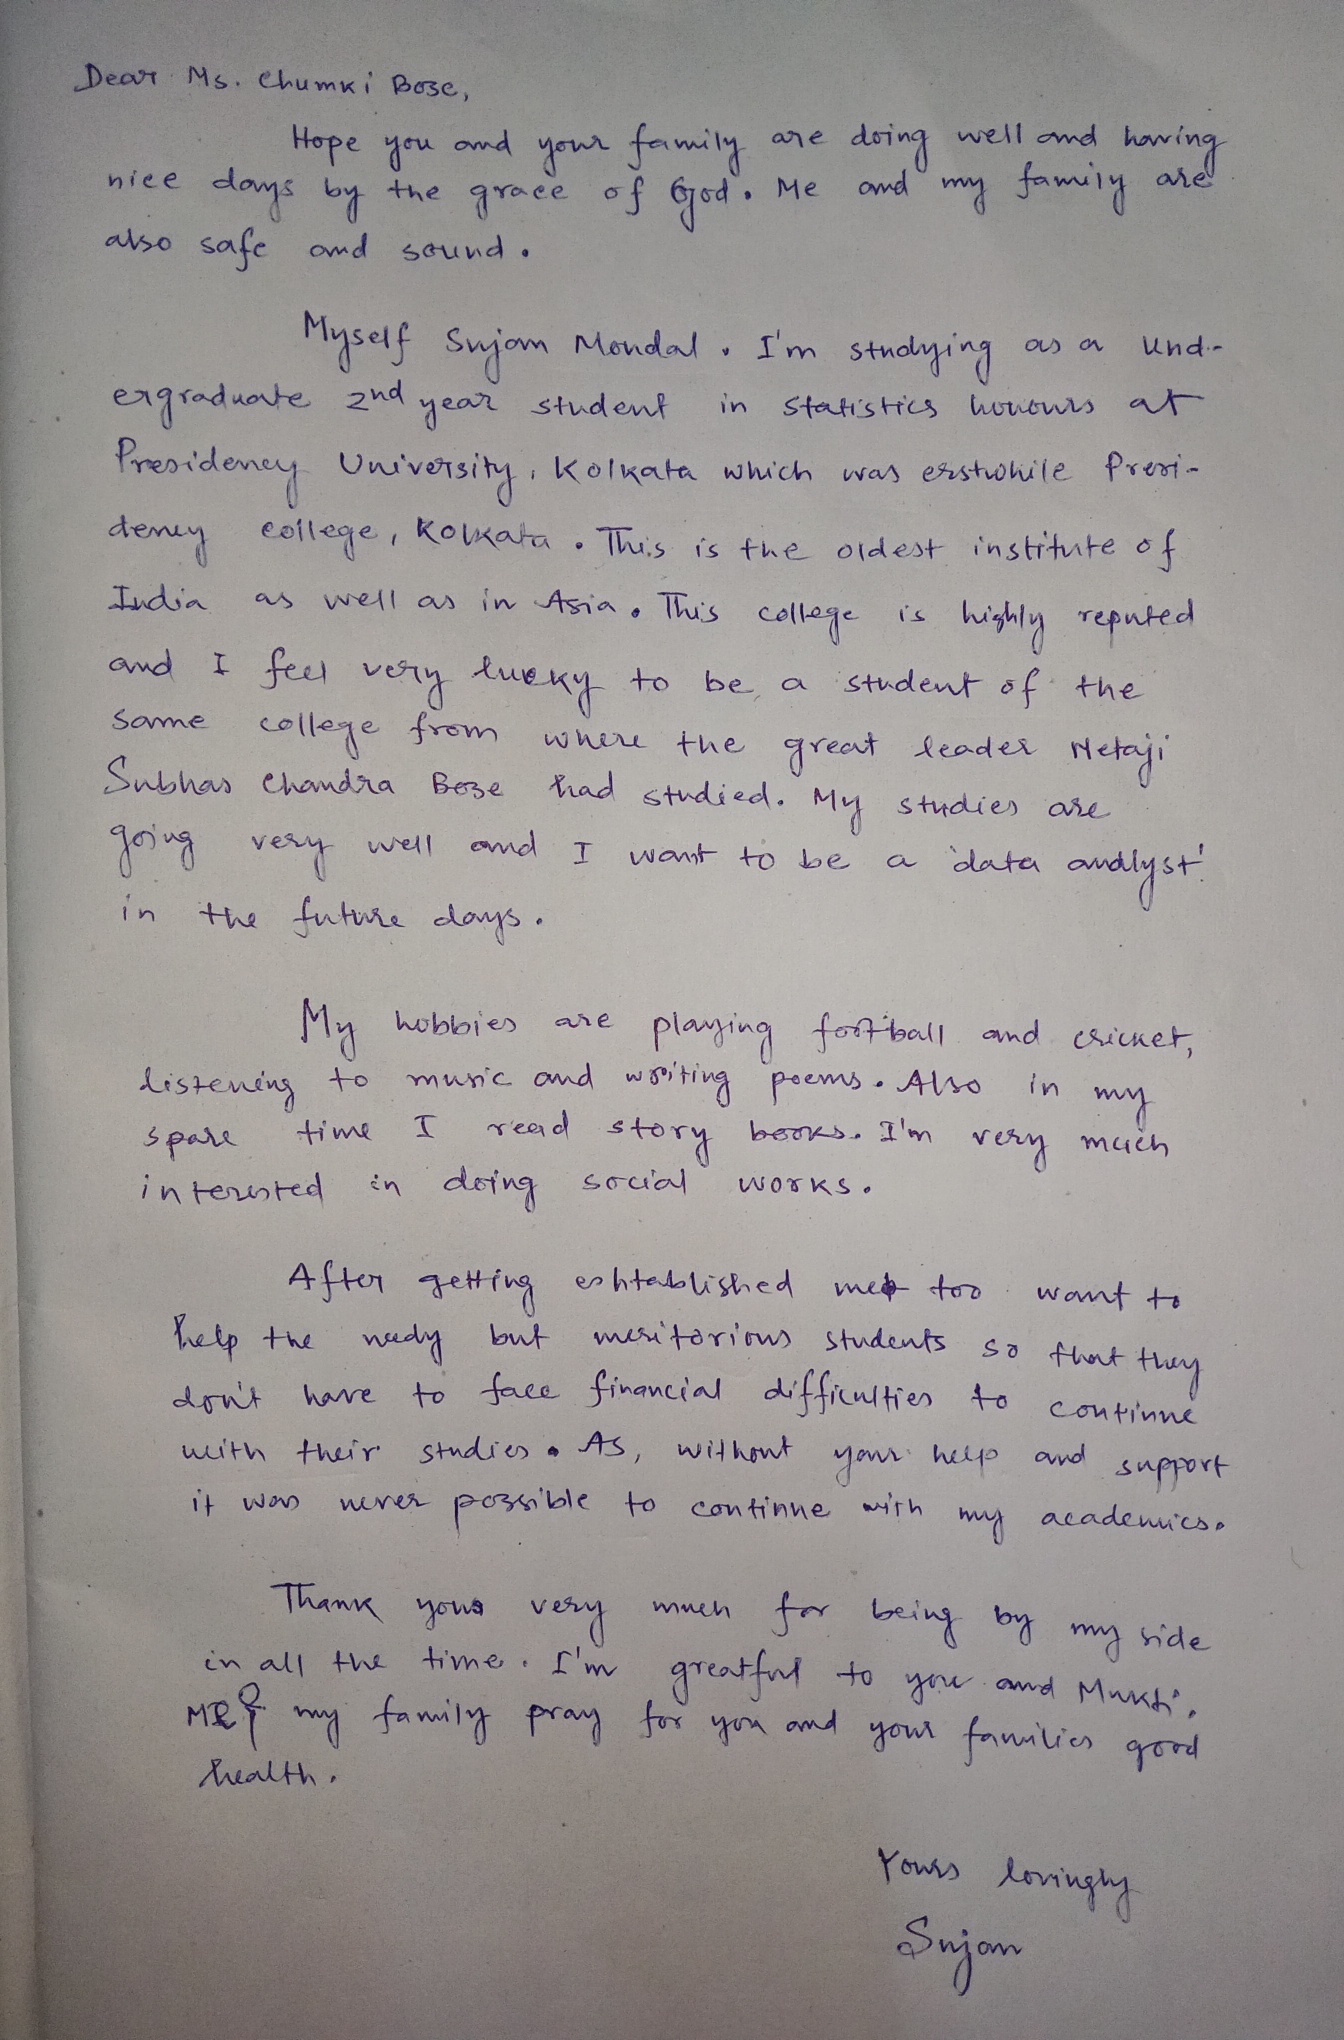 Dear Ms. Chumki Bose,
Hope you and your family are doing well and having
nice days by the grace of God. Me and my family are
also safe and sound.
Myself Sujan Mondal. I'm studying as a und-
ergraduate 2nd year student in statistics honours at
Presidency University, Kolkata which was erstwhile Presi-
dency college, Kolkata. This is the oldest institute of
India as well as in Asia. This college is highly reputed
and I feel very lucky to be a student of the
same college from where the great leader Netaji
Subhas Chandra Bose had studied. My studies are
going very well and I want to be a 'data analyst'
in the future days.
My hobbies are playing football and cricket,
listening to music and writing poems. Also in my
spare time I read story books. I'm very much
interested in doing social works.
After getting eshtablished me too want to
help the needy but meritorious students so that they
don't have to face financial difficulties to continue
with their studies. As, without your help and support
it was never possible to continue with my academics.
Thank you very much for being by my side
in all the time. I'm greatful to you and Mukti.
Me & my family pray for you and your families good
health.
Yours lovingly
Sujan